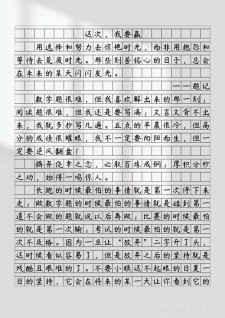 这次，我要赢
用选择和努力去惊艳时光，而非用抱怨和
等待去荒废时光。那些刻苦铭心的日子，总会
在未来的某天闪闪发光。
——题记
数学题很难，但我喜欢解出来的那一刻；
阅读题很难，但我还是要写满；文言文背不出
来，我就多抄写几遍。五点的早晨很冷，但高
分的成绩很暖眼，我不一定要向阳而生，但一
定要逆风翻盘！
摒弃侥幸之念，必取百炼成钢；厚积分秒
之功，始得一鸣惊人。
长跑的时候最怕的事情就是第一次停下来
走；做数学题的时候最怕的事情就是碰到第一
道不会做的题就说以后再做；比赛的时候最怕
的就是第一次输；考试的时候最怕的就是第一
次不及格。因为一旦让“放弃”二字开了头，
这时候看似容易了，但是放弃之后的坚持就是
残酷且艰难的了。不要小瞧这不起眼的日复一
日的坚持，它会在将来的某一天让你看到它的